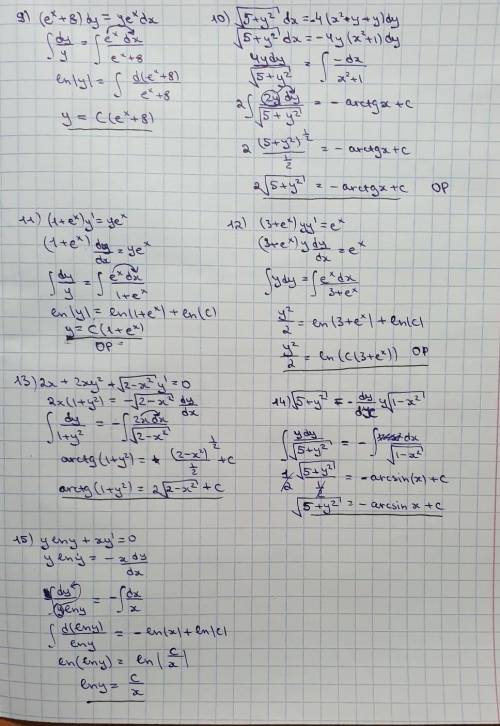 9) (eˣ+8)dy = yeˣdx
∫ dy/y = ∫ eˣdx/(eˣ+8)
ln|y| = ∫ d(eˣ+8)/(eˣ+8)
y = C(eˣ+8)
10) √(5+y²) dx = -4(x²+y+y)dy
√(5+y²) dx = -4y(x²+1)dy
4ydy/√(5+y²) = ∫ -dx/(x²+1)
2∫ 2y dy/√(5+y²) = - arctgx + C
2 (5+y²)^½/½ = - arctgx + C
2√(5+y²) = - arctgx + C ОР
11) (1+eˣ)y' = yeˣ
(1+eˣ) dy/dx = yeˣ
∫ dy/y = ∫ eˣdx/(1+eˣ)
ln|y| = ln(1+eˣ) + ln(C)
y = C(1+eˣ)
ОР
12) (3+eˣ)yy' = eˣ
(3+eˣ)y dy/dx = eˣ
∫ydy = ∫ eˣdx/(3+eˣ)
y²/2 = ln|3+eˣ| + ln|C|
y²/2 = ln(C(3+eˣ)) ОР
13) 2x + 2xy² + √(2-x²) y' = 0
2x(1+y²) = -√(2-x²) dy/dx
∫ dy/(1+y²) = -∫ 2xdx/√(2-x²)
arctg(1+y²) = (2-x²)^½/½ + C
arctg(1+y²) = 2√(2-x²) + C
14) √(5+y²) = - dy/dx y√(1-x²)
∫ ydy/√(5+y²) = -∫ dx/√(1-x²)
1/2 √(5+y²)/½ = -arcsin(x) + C
√(5+y²) = - arcsin x + C
15) y ln y + xy' = 0
y ln y = -x dy/dx
∫ dy/(y ln y) = -∫ dx/x
∫ d(ln y)/ln y = -ln(x) + ln|C|
ln(ln y) = ln|C/x|
ln y = C/x